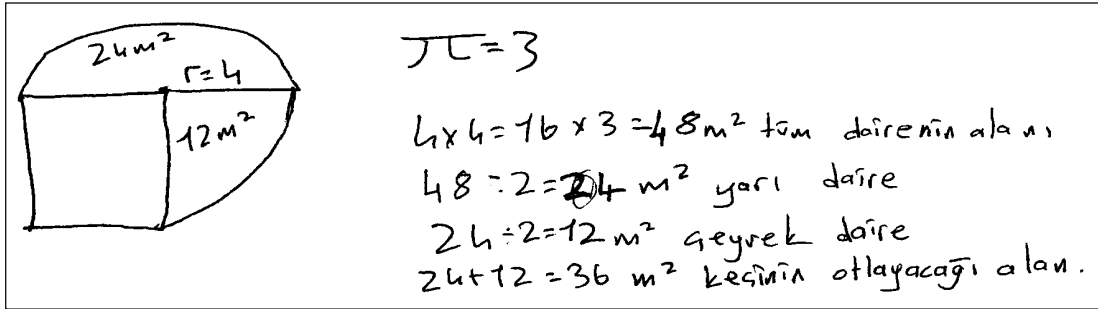 24m²
r=4
12m²
π=3
4x4=16x3=48m² tüm dairenin alanı
48÷2=24 m² yarı daire
24÷2=12m² çeyrek daire
24+12=36 m² keçinin otlayacağı alan.